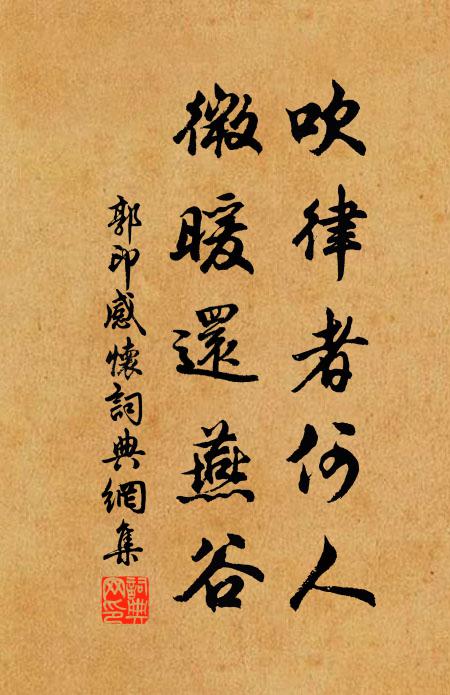 吹律者何人
微暖還燕谷
郭印感懷詞典網集
詞典网印